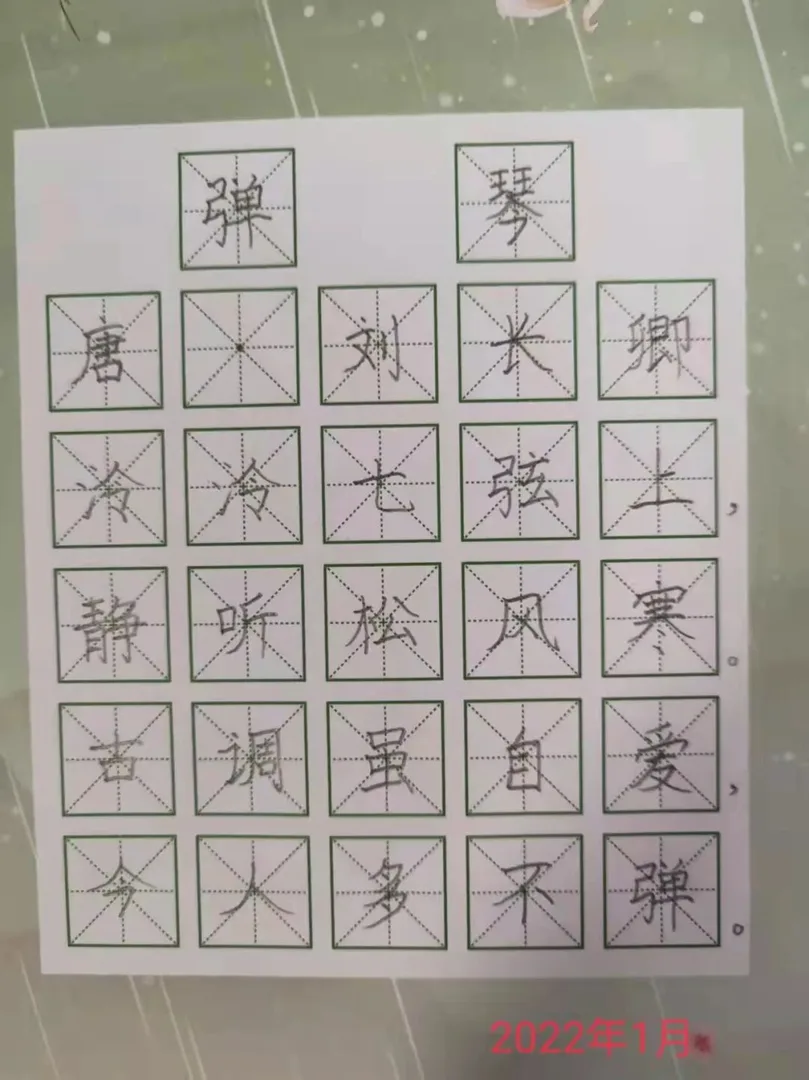 弹琴
唐·刘长卿
泠泠七弦上，
静听松风寒。
古调虽自爱，
今人多不弹。
2022年1月